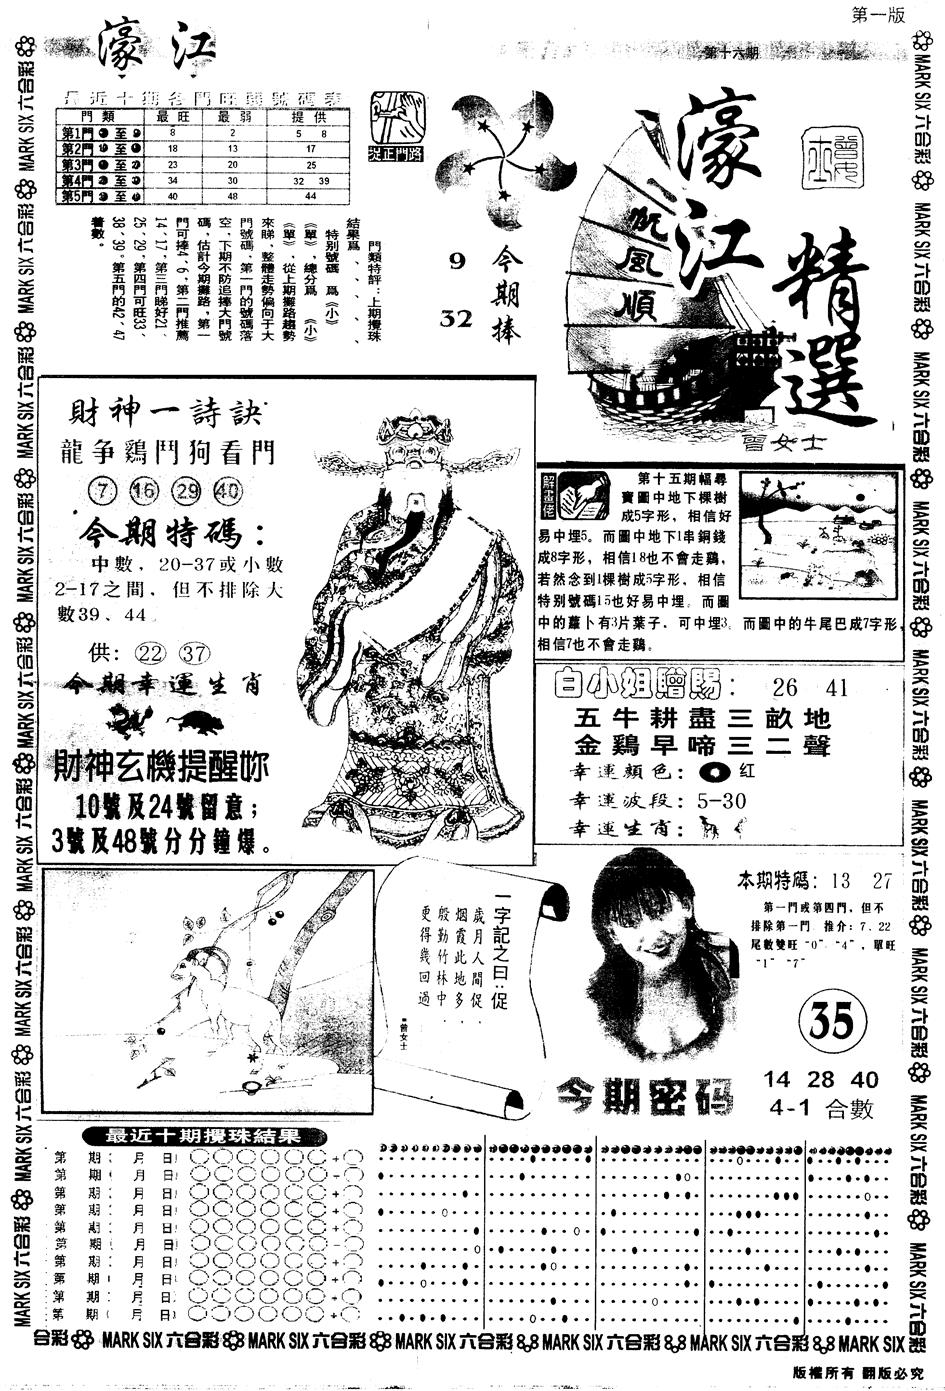 第一版
濠江
第十六期
最近十期各門旺弱號碼表
門類 最旺 最弱 提供
第1門 至 8 2 5 8
第2門 至 18 13 17
第3門 至 23 20 25
第4門 至 34 30 32 39
第5門 至 40 48 44
捉正門路
門類特評:上期攪珠
結果爲、、、、、
特别號碼 爲《小》
《單》,總分爲 《小》
《單》,從上期攤路趨勢
來睇,整體走勢偏向于大
門號碼,第一門的號碼落
空,下期不防追捧大門號
碼,估計今期攤路,第一
門可捧4、6,第二門推薦
14、17,第三門睇好21、
25、29,第四門可旺33、
38、39。第五門的42、47
着數。
今期捧
9
32
帆風順
濠江精選
曾女士
財神一詩訣
龍争鷄鬥狗看門
7 16 29 40
今期特碼:
中數,20-37或小數
2-17之間,但不排除大
數39、44
供: 22 37
今期幸運生肖
財神玄機提醒妳
10號及24號留意;
3號及48號分分鐘爆。
解畫佬
第十五期幅尋
寶圖中地下棵樹
成5字形,相信好
易中埋5。而圖中地下1串銅錢
成8字形,相信18也不會走鷄,
若然念到1棵樹成5字形,相信
特别號碼15也好易中埋。而圖
中的蘿卜有3片葉子,可中埋3。而圖中的牛尾巴成7字形,
相信7也不會走鷄。
白小姐贈賜: 26 41
五牛耕盡三畝地
金鷄早啼三二聲
幸運顏色: 红
幸運波段: 5-30
幸運生肖:
一字記之曰:促
歲月人間促,
烟霞此地多,
殷勤竹林中,
更得幾回過
曾女士
本期特碼: 13 27
第一門或第四門,但不
排除第一門 推介:7、22
尾數雙旺“0”“4”,單旺
“1”“7”
35
14 28 40
4-1 合數
今期密码
最近十期攪珠結果
第 期( 月 日)
第 期( 月 日)
第 期( 月 日)
第 期( 月 日)
第 期( 月 日)
第 期( 月 日)
第 期( 月 日)
第 期( 月 日)
第 期( 月 日)
第 期( 月 日)
合彩 MARK SIX 六合彩 MARK SIX 六合彩 MARK SIX 六合彩 MARK SIX 六合彩 MARK SIX 六合彩 MARK SIX
版權所有 翻版必究